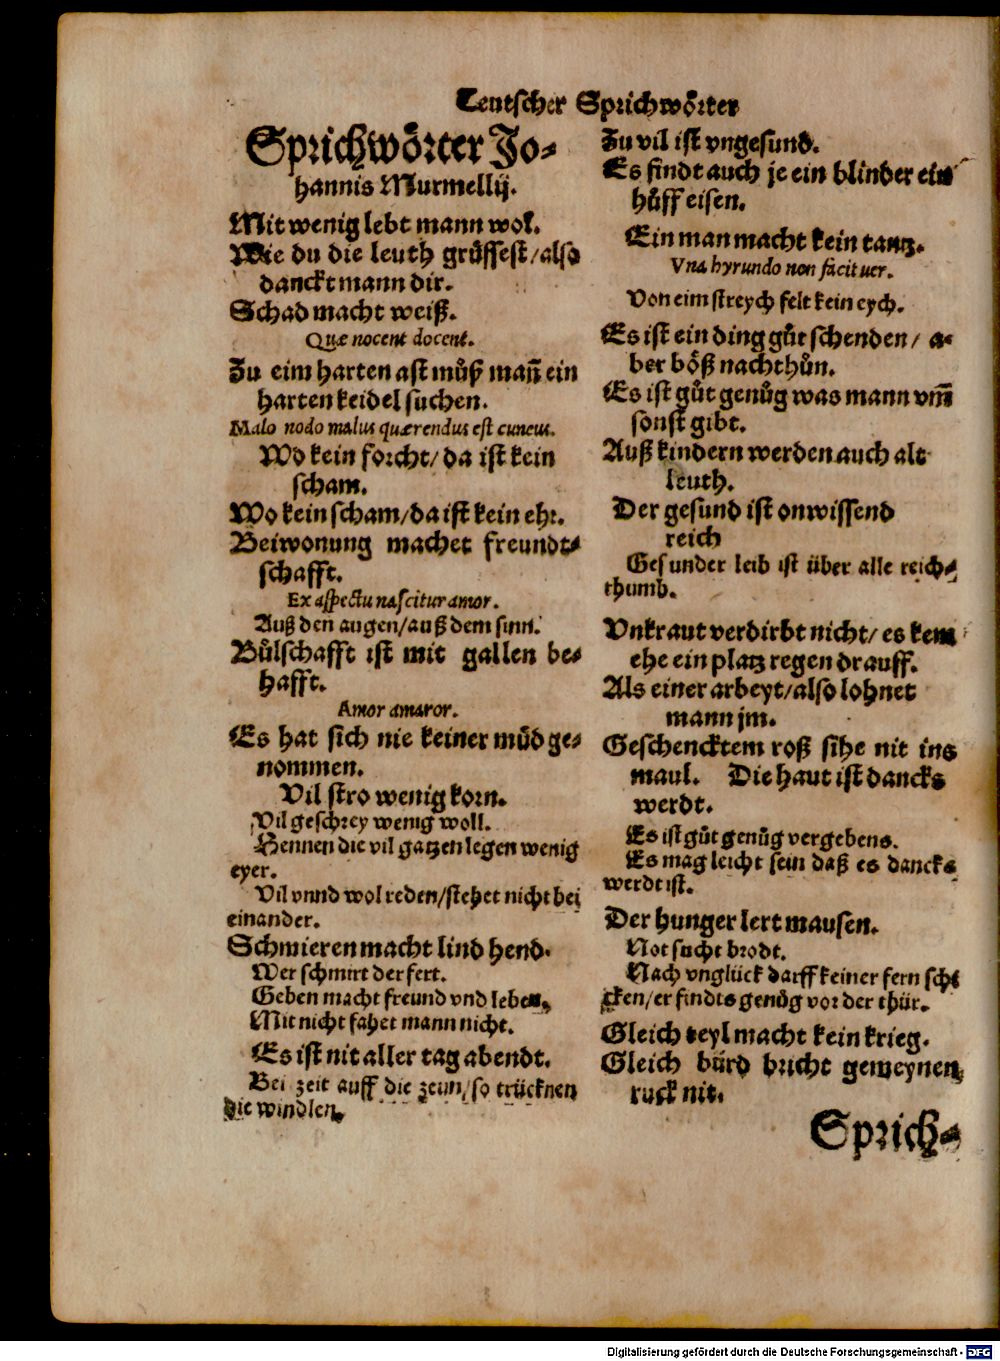 Teutscher Sprichwörter
Sprichwörter Jo-
hannis Murmellij.
Mit wenig lebt mann wol.
Wie du die leuth grüssest/also
danckt mann dir.
Schad macht weiß.
Quæ nocent docent.
Zu eim harten ast můß mañ ein
harten keidel suchen.
Malo nodo malus quærendus est cuneus.
Wo kein forcht/da ist kein
scham.
Wo kein scham/da ist kein ehr.
Beiwonung machet freundt-
schafft.
Ex aspectu nascitur amor.
Auß den augen/auß dem sinn.
Bůlschafft ist mit gallen be-
hafft.
Amor amaror.
Es hat sich nie keiner můd ge-
nommen.
Vil stro wenig korn.
Vil geschrey wenig woll.
Hennen die vil gatzen legen wenig
eyer.
Vil vnnd wol reden/stehet nicht bei
einander.
Schmieren macht lind hend.
Wer schmirt der fert.
Geben macht freund vnd leben,
Mit nicht fahet mann nicht.
Es ist nit aller tag abendt.
Bei zeit auff die zeun/so trücknen
die windlen.
Zu vil ist vngesund.
Es findt auch je ein blinder ein
hůff eisen.
Ein man macht kein tantz.
Vna hyrundo non facit uer.
Von eim streych felt kein eych.
Es ist ein ding gůt schenden/ a-
ber böß nachthůn.
Es ist gůt genůg was mann vm̃
sonst gibt.
Auß kindern werden auch alt
leuth.
Der gesund ist onwissend
reich
Gesunder leib ist über alle reich-
thumb.
Vnkraut verdirbt nicht/ es kem
ehe ein platz regen drauff.
Als einer arbeyt/also lohnet
mann jm.
Geschencktem roß sihe nit ins
maul. Die haut ist dancks
werdt.
Es ist gůt genůg vergebens.
Es mag leicht sein daß es dancks
werdt ist.
Der hunger lert mausen.
Not sucht brodt.
Nach vnglück darff keiner fern schi
cken/er findts genůg vor der thür.
Gleich teyl macht kein krieg.
Gleich bürd bricht gemeynen
ruck nit.
Sprich-
Digitalisierung gefördert durch die Deutsche Forschungsgemeinschaft - DFG